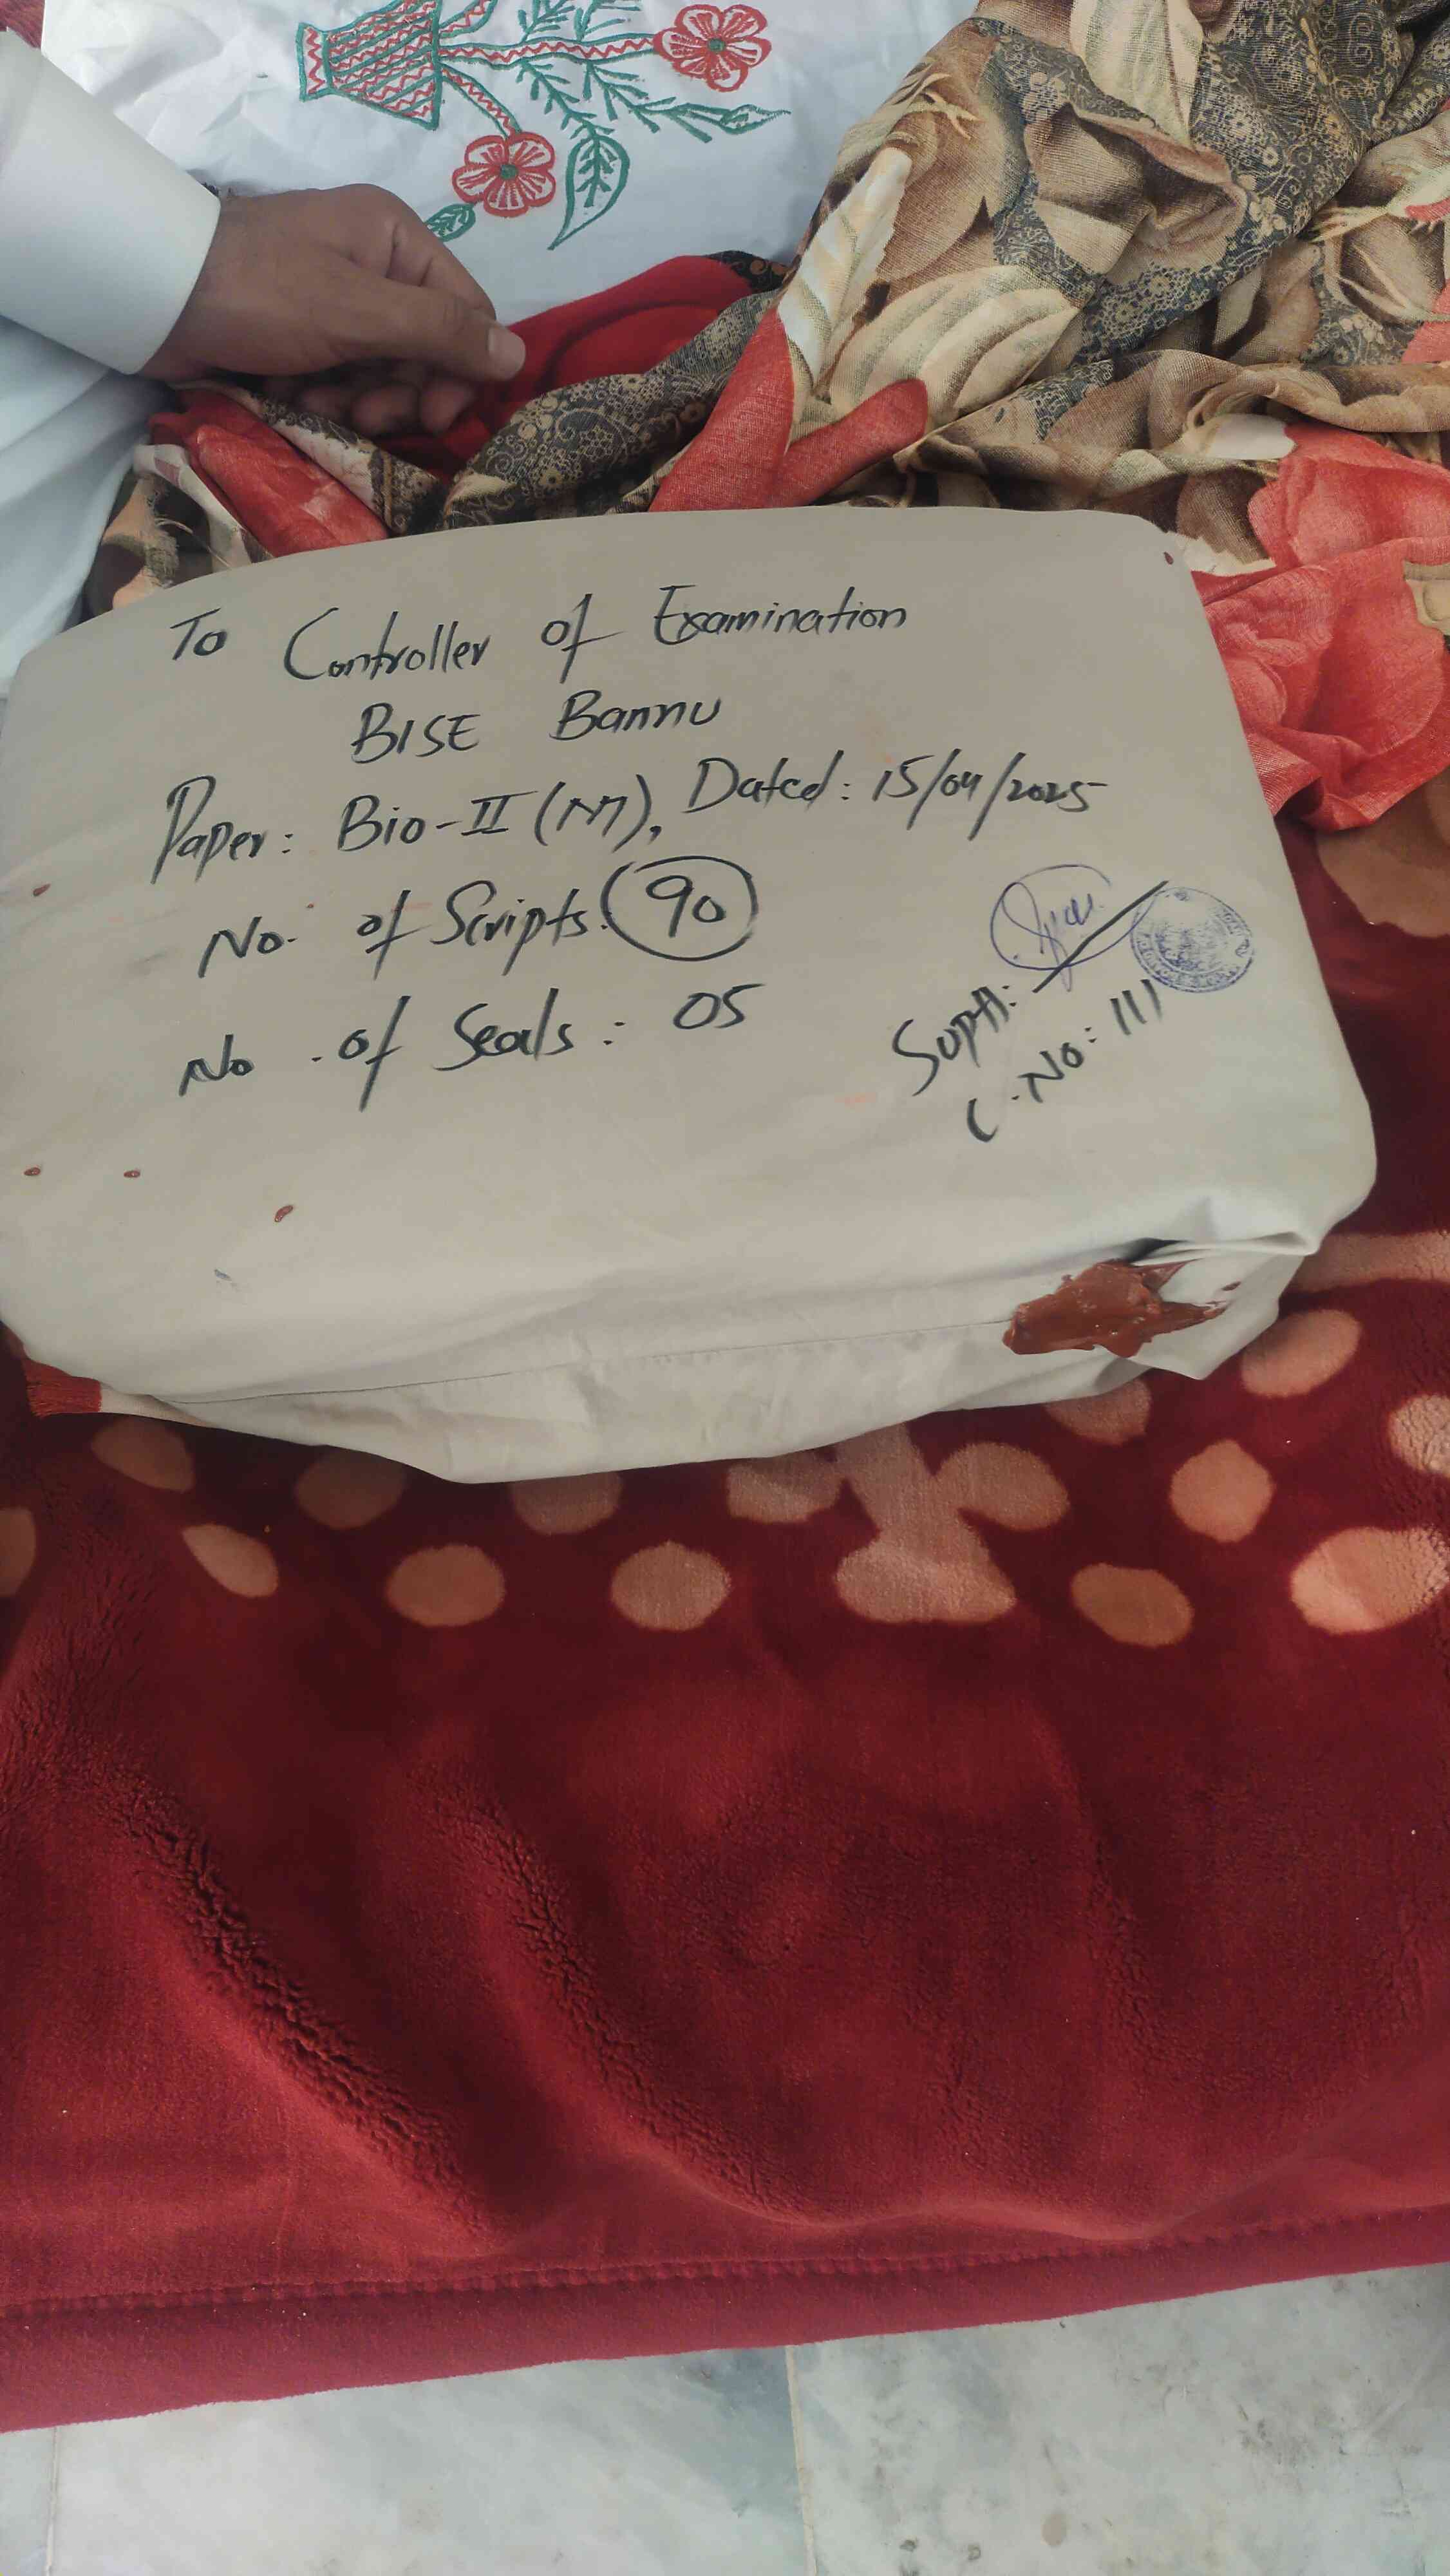 To Controller of Examination
BISE Bannu
Paper: Bio-II (M), Dated: 15/04/2025
No. of Scripts: 90
No. of Seals: 05
Supdt:
C.No: 111